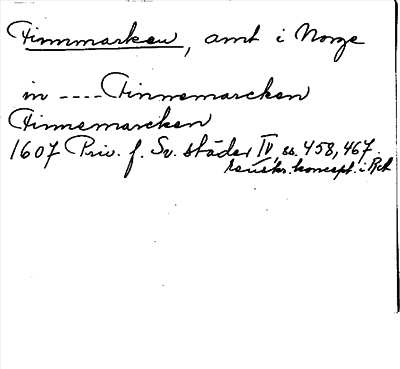 Finnmarken, amt i Norge
in ---- Finnemarcken
Finnemarcken
1607 Priv. f. Sv. städer IV, ss. 458, 467.
renskr. koncept. i RA